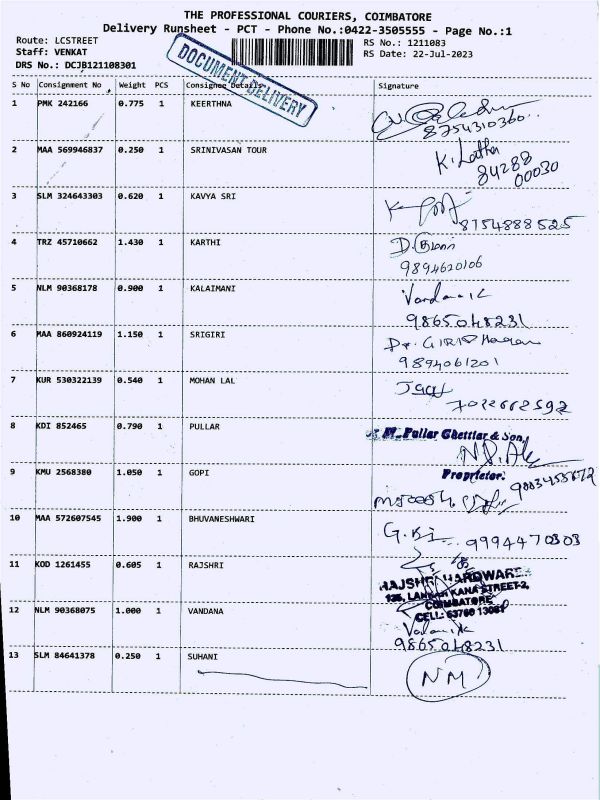 THE PROFESSIONAL COURIERS, COIMBATORE
Delivery Runsheet - PCT - Phone No.:0422-3505555 - Page No.:1
Route: LCSTREET
RS No.: 1211083
Staff: VENKAT
RS Date: 22-Jul-2023
DRS No.: DCJB121108301
DOCUMENT DELIVERY
S No Consignment No Weight PCS Consignee Details Signature
1 PMK 242166 0.775 1 KEERTHNA
8754310360
2 MAA 569946837 0.250 1 SRINIVASAN TOUR K. Latha
84288
00030
3 SLM 324643303 0.620 1 KAVYA SRI
8754888525
4 TRZ 45710662 1.430 1 KARTHI
9894620106
5 NLM 90368178 0.900 1 KALAIMANI Vandana K
9865048231
6 MAA 860924119 1.150 1 SRIGIRI
9894061201
7 KUR 530322139 0.540 1 MOHAN LAL
7022662592
8 KDI 852465 0.790 1 PULLAR M. Pullar Chettiar & Son,
Proprietor.
9 KMU 2568380 1.050 1 GOPI
10 MAA 572607545 1.900 1 BHUVANESHWARI
9994470303
11 KOD 1261455 0.605 1 RAJSHRI
RAJSHRI HARDWARE
KANA STREET-2,
COIMBATORE
CELL: 63760
12 NLM 90368075 1.000 1 VANDANA
9865048231
13 SLM 84641378 0.250 1 SUHANI NM